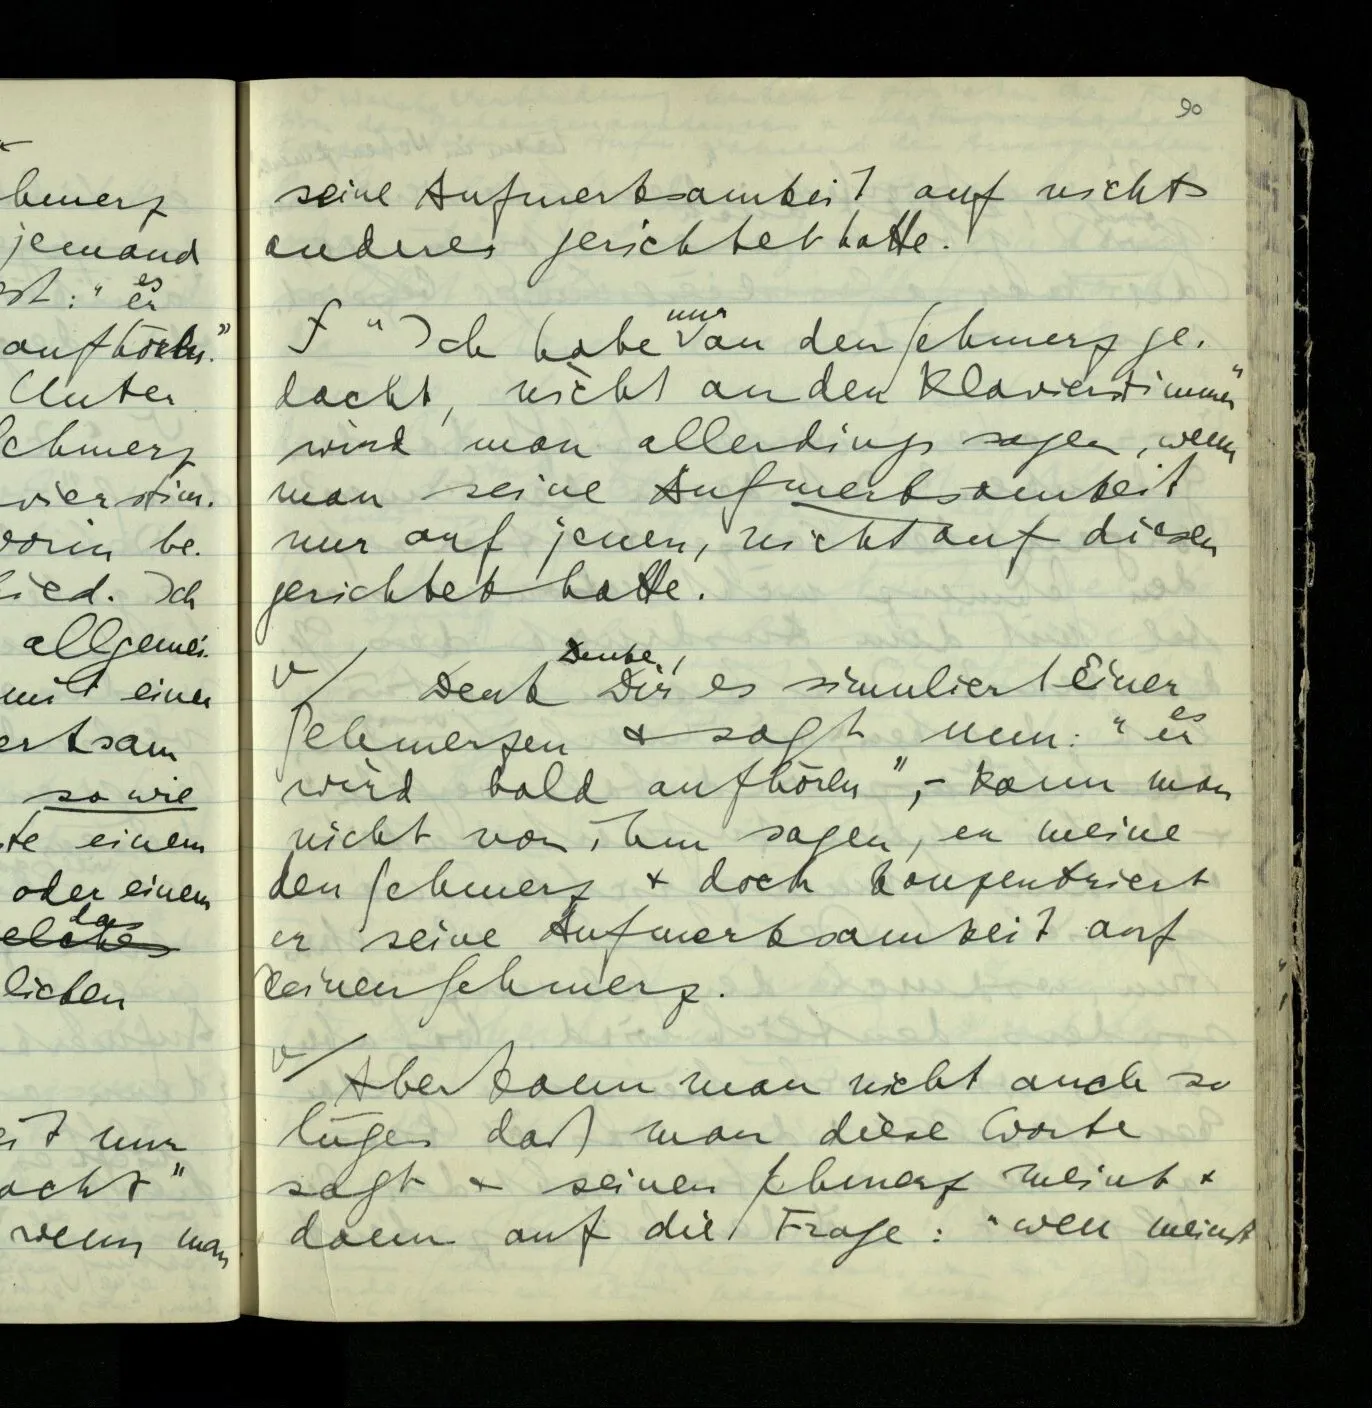 hmerz
jemand
st: " es er
aufhören."
Unter
Schmerz
vierstim-
worin be-
ied. Ich
allgemei-
mit einer
erksam
so wie
te einem
oder einem
elches das
lichen
eit nur
acht"
wenn man
90
seine Aufmerksamkeit auf nichts
anderes gerichtet hatte.
f " Ich habe nur an den Schmerz ge-
dacht, nicht an den Klavierstimmer"
wird man allerdings sagen, wenn
man seine Aufmerksamkeit
nur auf jenen, nicht auf diesen
gerichtet hatte.
Denke,
v/ Denk Dir es simuliert Einer
Schmerzen & sagt nun: " es er
wird bald aufhören", – kann man
nicht von ihm sagen, er meine
den Schmerz & doch konzentriert
er seine Aufmerksamkeit auf
keinen Schmerz.
v/ Aber kann man nicht auch so
lügen daß man diese Worte
sagt & seinen Schmerz meint &
dann auf die Frage: "wen meinst